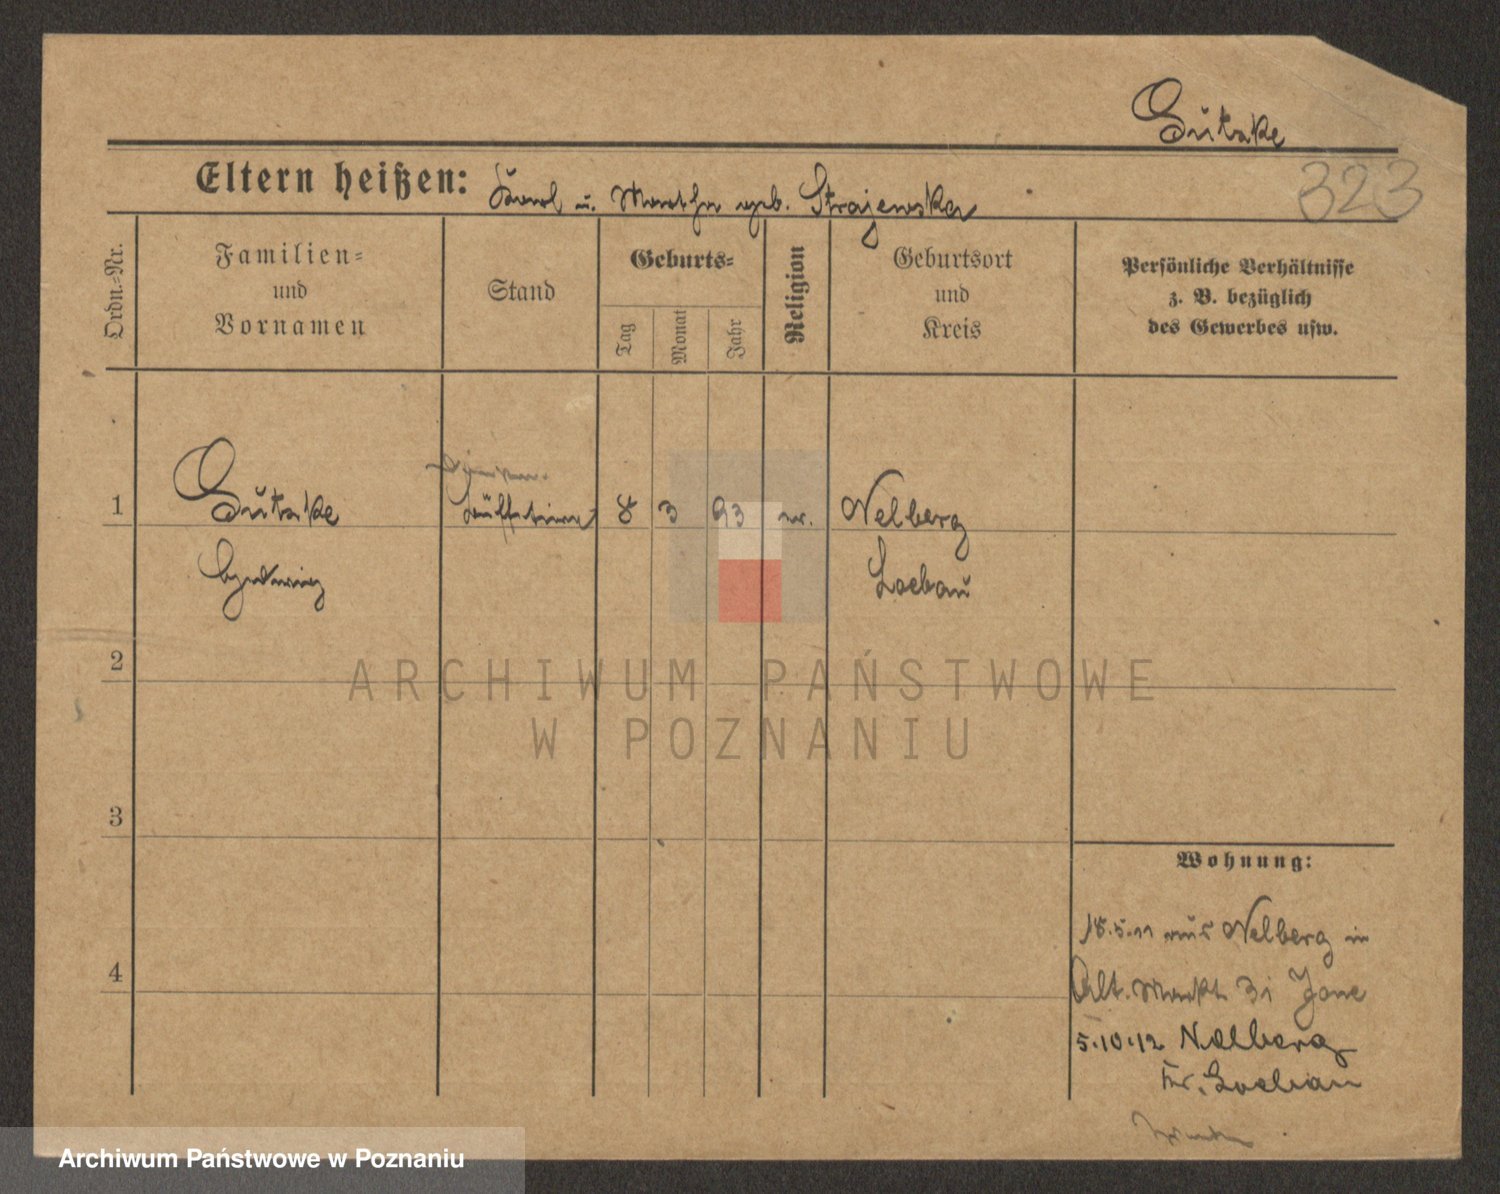 Gutzke
Eltern heißen: Karl u. Martha geb. Strajewska
323
Ordn.-Nr.
Familien-
und
Vornamen
Stand
Geburts-
Tag
Monat
Jahr
Religion
Geburtsort
und
Kreis
Persönliche Verhältnisse
z. B. bezüglich
des Gewerbes usw.
1
Gutzke
8 3 93 ev.
Nelberg
Hedwig
Loebau
2
ARCHIWUM PAŃSTWOWE
W POZNANIU
3
Wohnung:
18.5.11 aus Nelberg in
4
Alt. Markt 31
5.10.12 Nelberg
Kr. Loebau
Archiwum Państwowe w Poznaniu